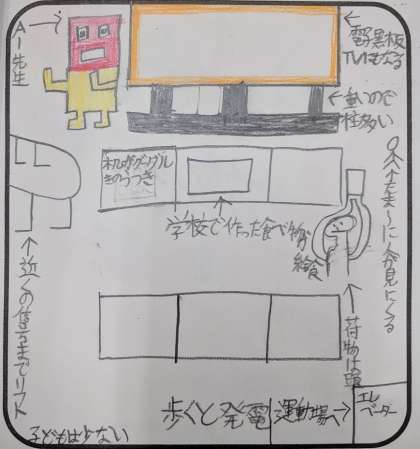 AI先生
電子黒板
TVにもなる
重いので
柱多い
机がグーグル
きのうつき
学校で作った食べ物
給食
人たま〜に分見にくる
近くの生言までリフト
荷物は
歩くと発電
運動場へ
エレ
ベーター
子どもは少ない